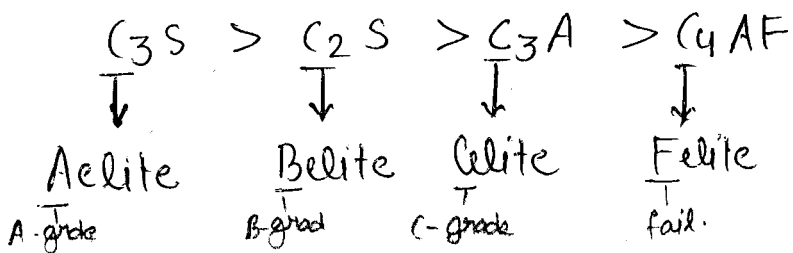 C3S > C2S > C3A > C4AF
Aelite Belite Celite Felite
A-grade B-grad C-grade fail.